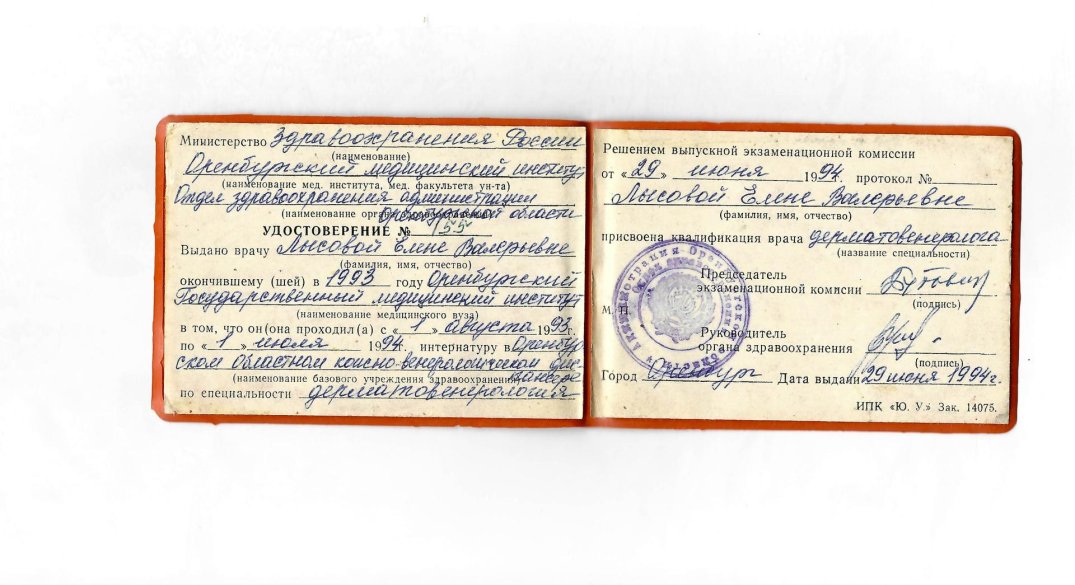 Министерство Здравоохранения России
(наименование)
Оренбургский медицинский институт
(наименование мед. института, мед. факультета ун-та)
Отдел здравоохранения администрации
Оренбургской области
(наименование органа здравоохранения)
УДОСТОВЕРЕНИЕ № 155
Выдано врачу Лысовой Елене Валерьевне
(фамилия, имя, отчество)
окончившему (шей) в 1993 году Оренбургский
Государственный медицинский институт
(наименование медицинского вуза)
в том, что он(она проходил(а) с «1» августа 1993 г.
по «1» июля 1994 г. интернатуру в Оренбур
ском областном кожно-венерологическом дис
пансере
(наименование базового учреждения здравоохранения)
по специальности дерматовенерология
Решением выпускной экзаменационной комиссии
от «29» июня 1994 г. протокол №
Лысовой Елене Валерьевне
(фамилия, имя, отчество)
присвоена квалификация врача дерматовенеролога
(название специальности)
Председатель
экзаменационной комиссии
(подпись)
М. П.
Руководитель
органа здравоохранения
(подпись)
Город Оренбург Дата выдачи 29 июня 1994 г.
ИПК «Ю. У.» Зак. 14075.